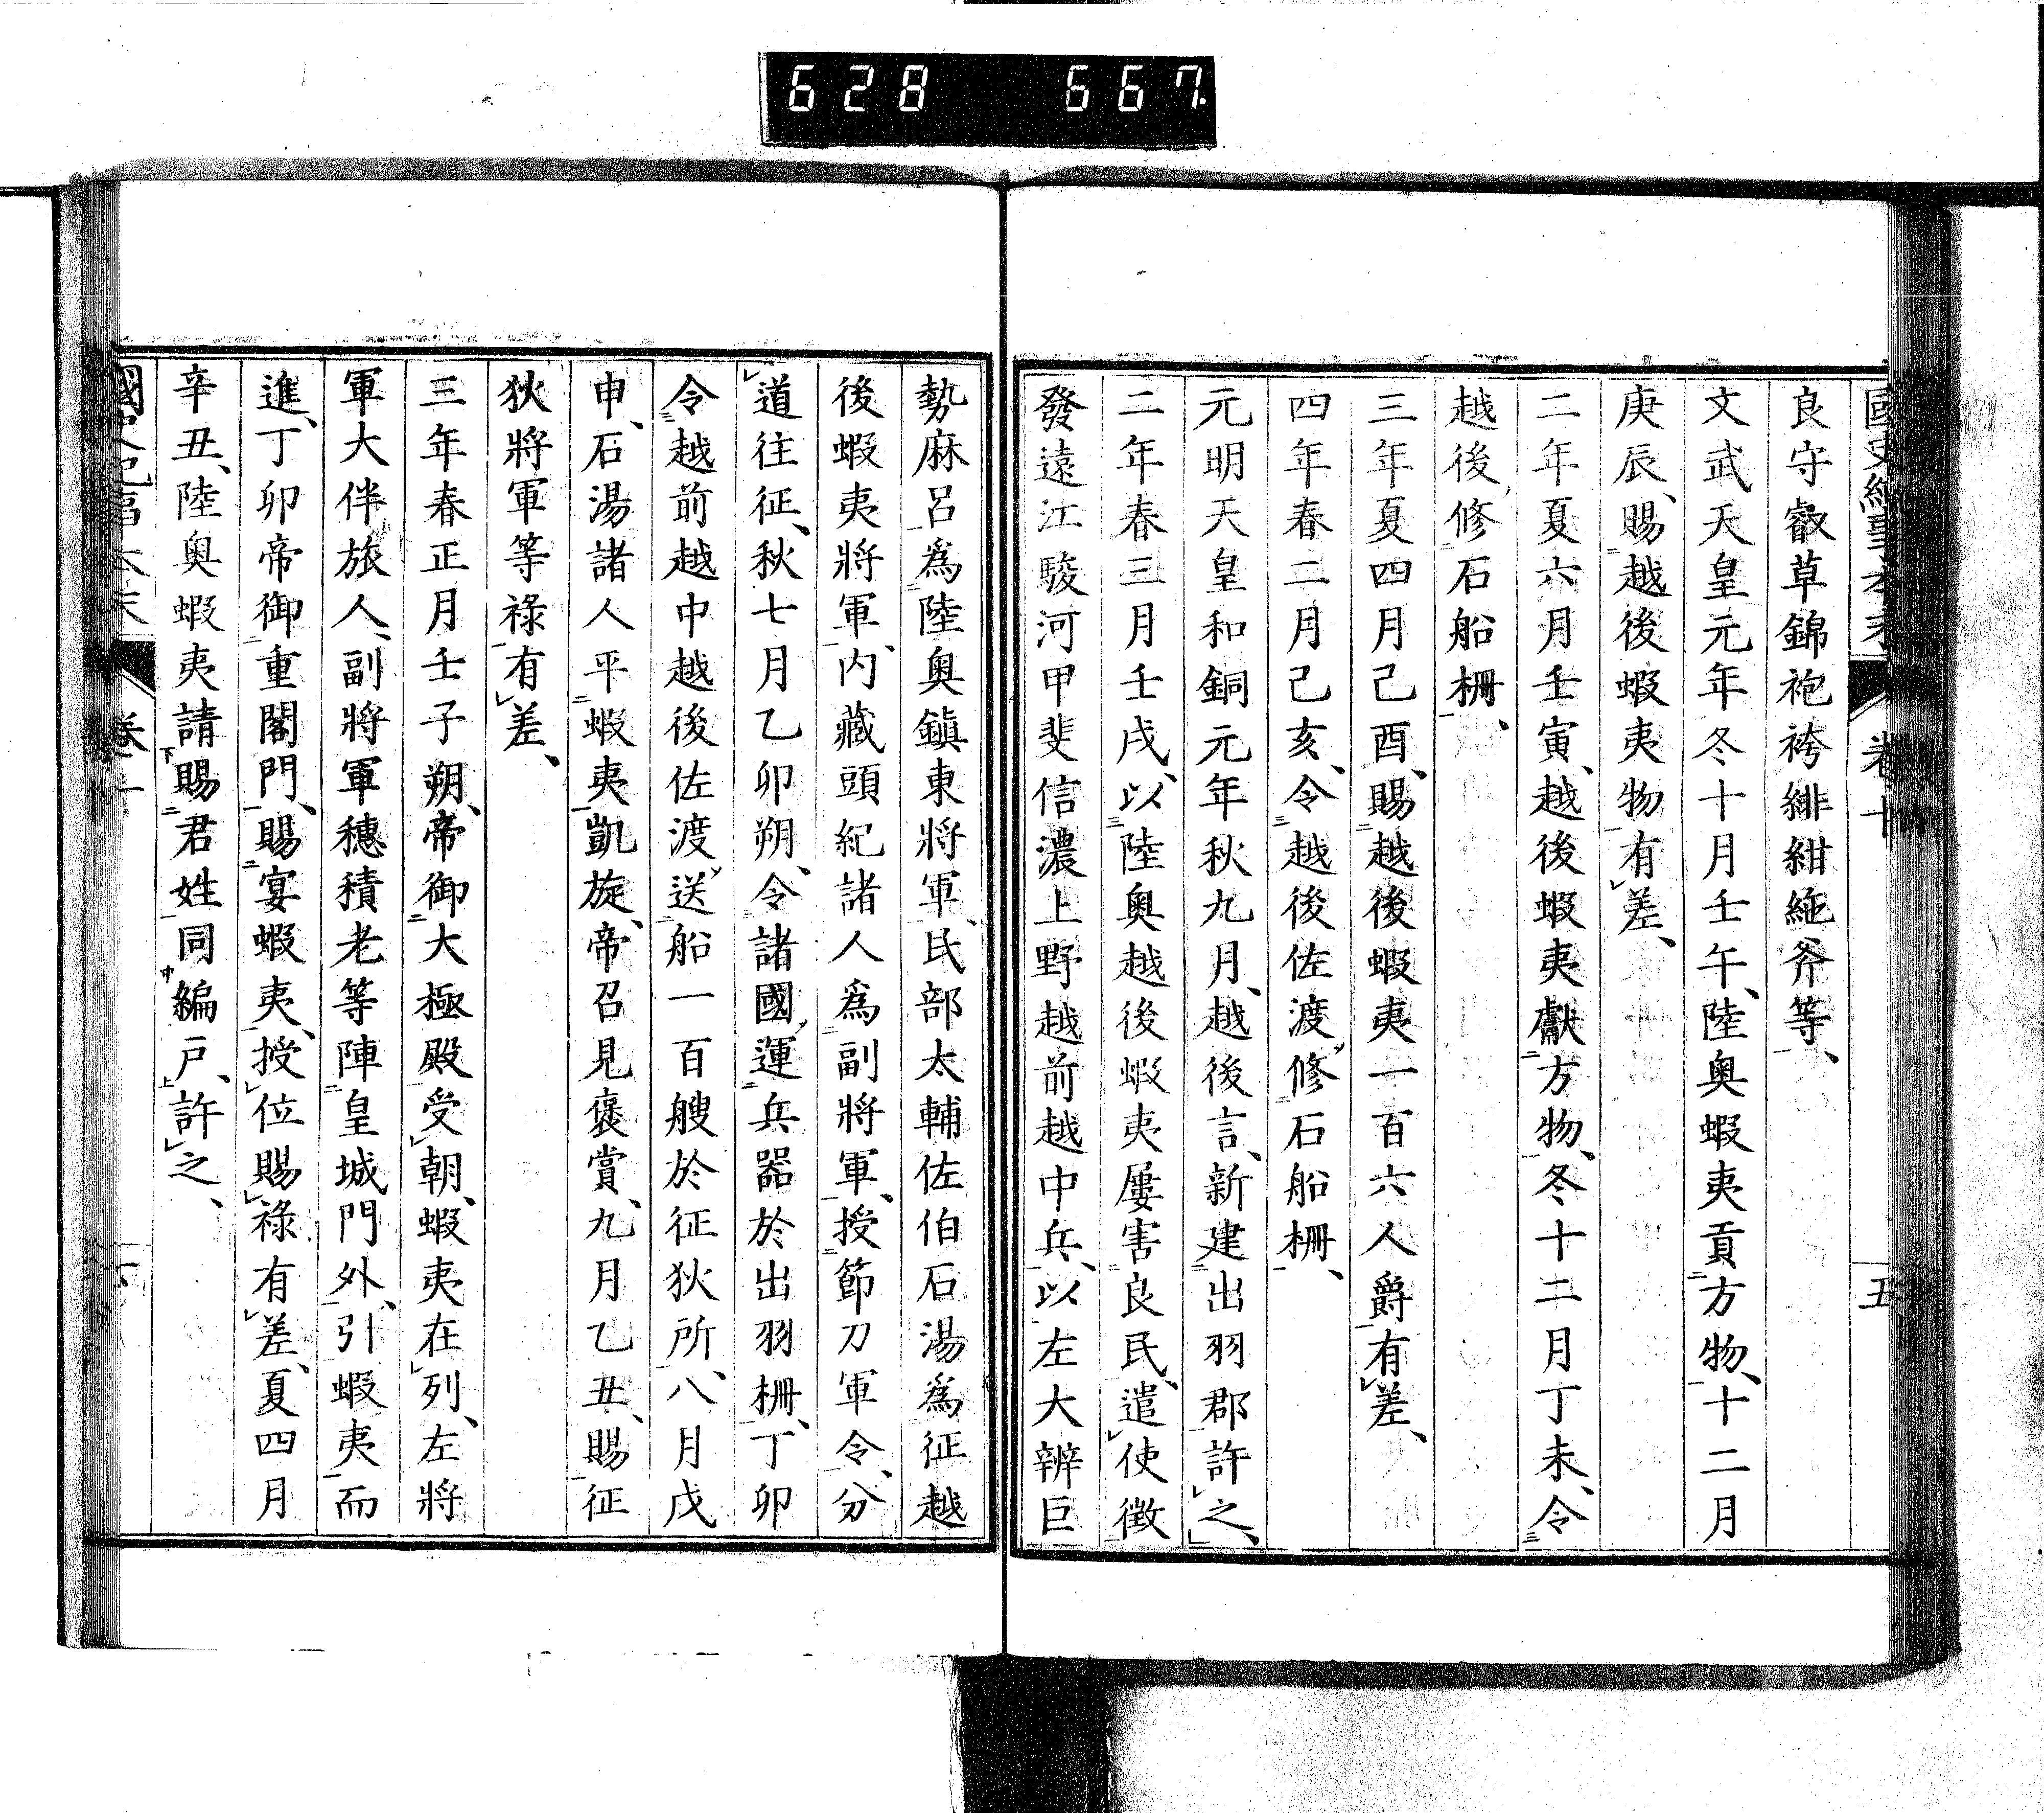 628 667
良守叡草錦袍袴緋紺絁斧等、
文武天皇元年冬十月壬午、陸奧蝦夷貢二方物一、十二月
庚辰、賜二越後蝦夷物一有レ差、
二年夏六月壬寅、越後蝦夷獻二方物一、冬十二月丁未、令三
越後修二石船柵一、
三年夏四月己酉、賜二越後蝦夷一百六人爵一有レ差、
四年春二月己亥、令三越後佐渡修二石船柵一、
元明天皇和銅元年秋九月、越後言、新建二出羽郡一許レ之、
二年春三月壬戌、以三陸奧越後蝦夷屢害二良民一、遣レ使徵
發遠江駿河甲斐信濃上野越前越中兵、以左大辨巨
勢麻呂爲二陸奧鎭東將軍一、民部太輔佐伯石湯爲征越
後蝦夷將軍、內藏頭紀諸人爲二副將軍一、授二節刀軍令一、分
レ道往征、秋七月乙卯朔、令三諸國運二兵器於出羽柵一、丁卯
令三越前越中越後佐渡送二船一百艘於征狄所一、八月戊
申、石湯諸人平二蝦夷一凱旋、帝召見褒賞、九月乙丑、賜二征
狄將軍等祿一有レ差、
三年春正月壬子朔、帝御二大極殿一受レ朝、蝦夷在レ列、左將
軍大伴旅人、副將軍穗積老等陣二皇城門外一、引二蝦夷一而
進、丁卯帝御二重閣門一、賜二宴蝦夷一、授レ位賜レ祿有レ差、夏四月
辛丑、陸奧蝦夷請下賜二君姓一同中編戶上、許レ之、
卷十
五